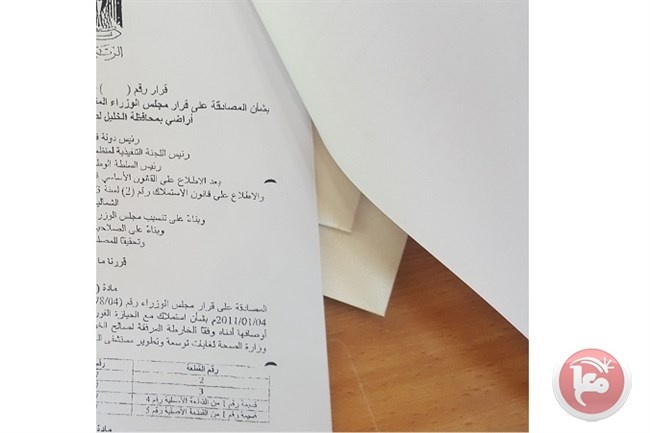 قرار رقم ( )
بشأن المصادقة على قرار مجلس الوزراء
أراضي بمحافظة الخليل
رئيس دولة
رئيس اللجنة التنفيذية
رئيس السلطة
بعد الاطلاع على القانون الأساسي
والاطلاع على قانون الاستملاك رقم (2) لسنة
وبناءً على تنسيب مجلس
وبناءً على
وتحقيقا
قررنا ما
مادة (
المصادقة على قرار مجلس الوزراء رقم (78/04/
2011/01/04م بشأن استملاك مع الحيازة
أوصافها أدناه وفقا للخارطة المرفقة لصالح
وزارة الصحة لغايات توسعة وتطوير مستشفى
رقم القطعة
2
3
قسيمة رقم 1 من القطعة الأصلية رقم 4
قسيمة رقم 1 من القطعة الأصلية رقم 5
مادة
معا